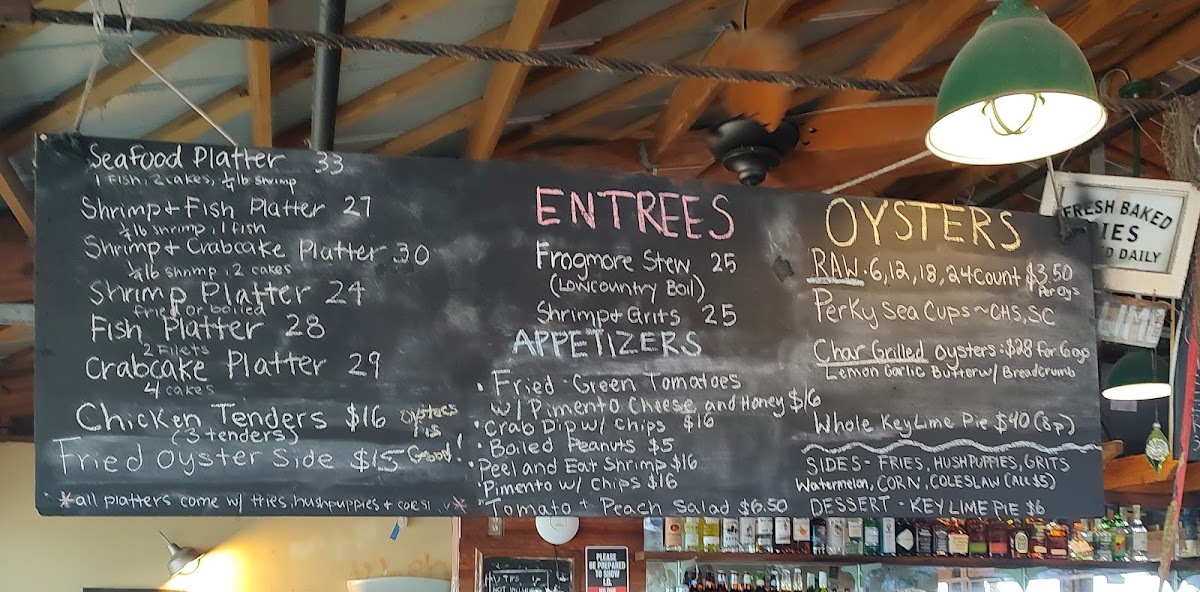 Seafood Platter 33
1 fish, 2 cakes, 1/4 lb shrimp
Shrimp + Fish Platter 27
1/4 lb shrimp, 1 fish
Shrimp + Crabcake Platter 30
1/4 lb shrimp, 2 cakes
Shrimp Platter 24
fried or boiled
Fish Platter 28
2 filets
Crabcake Platter 29
4 cakes
Chicken Tenders $16
(3 tenders)
Fried Oyster Side $15
Good!
*all platters come w/ fries, hushpuppies +
ENTREES
Frogmore Stew 25
(Lowcountry Boil)
Shrimp + Grits 25
APPETIZERS
• Fried Green Tomatoes
w/ Pimento Cheese and Honey $16
• Crab Dip w/ Chips $16
• Boiled Peanuts $5
• Peel and Eat Shrimp $16
• Pimento w/ Chips $16
Tomato + Peach Salad $6.50
OYSTERS
RAW · 6, 12, 18, 24 Count $3.50
Per Oys
Perky Sea Cups ~ CHS, SC
Char Grilled oysters: $28 for 6 oys
Lemon Garlic Butter w/ Breadcrumb
Whole Key Lime Pie $40 (8p)
SIDES - FRIES, HUSHPUPPIES, GRITS
Watermelon, CORN, COLESLAW (ALL $5)
DESSERT - KEY LIME PIE $6
FRESH BAKED
PIES
DAILY
PLEASE
BE PREPARED
TO SHOW